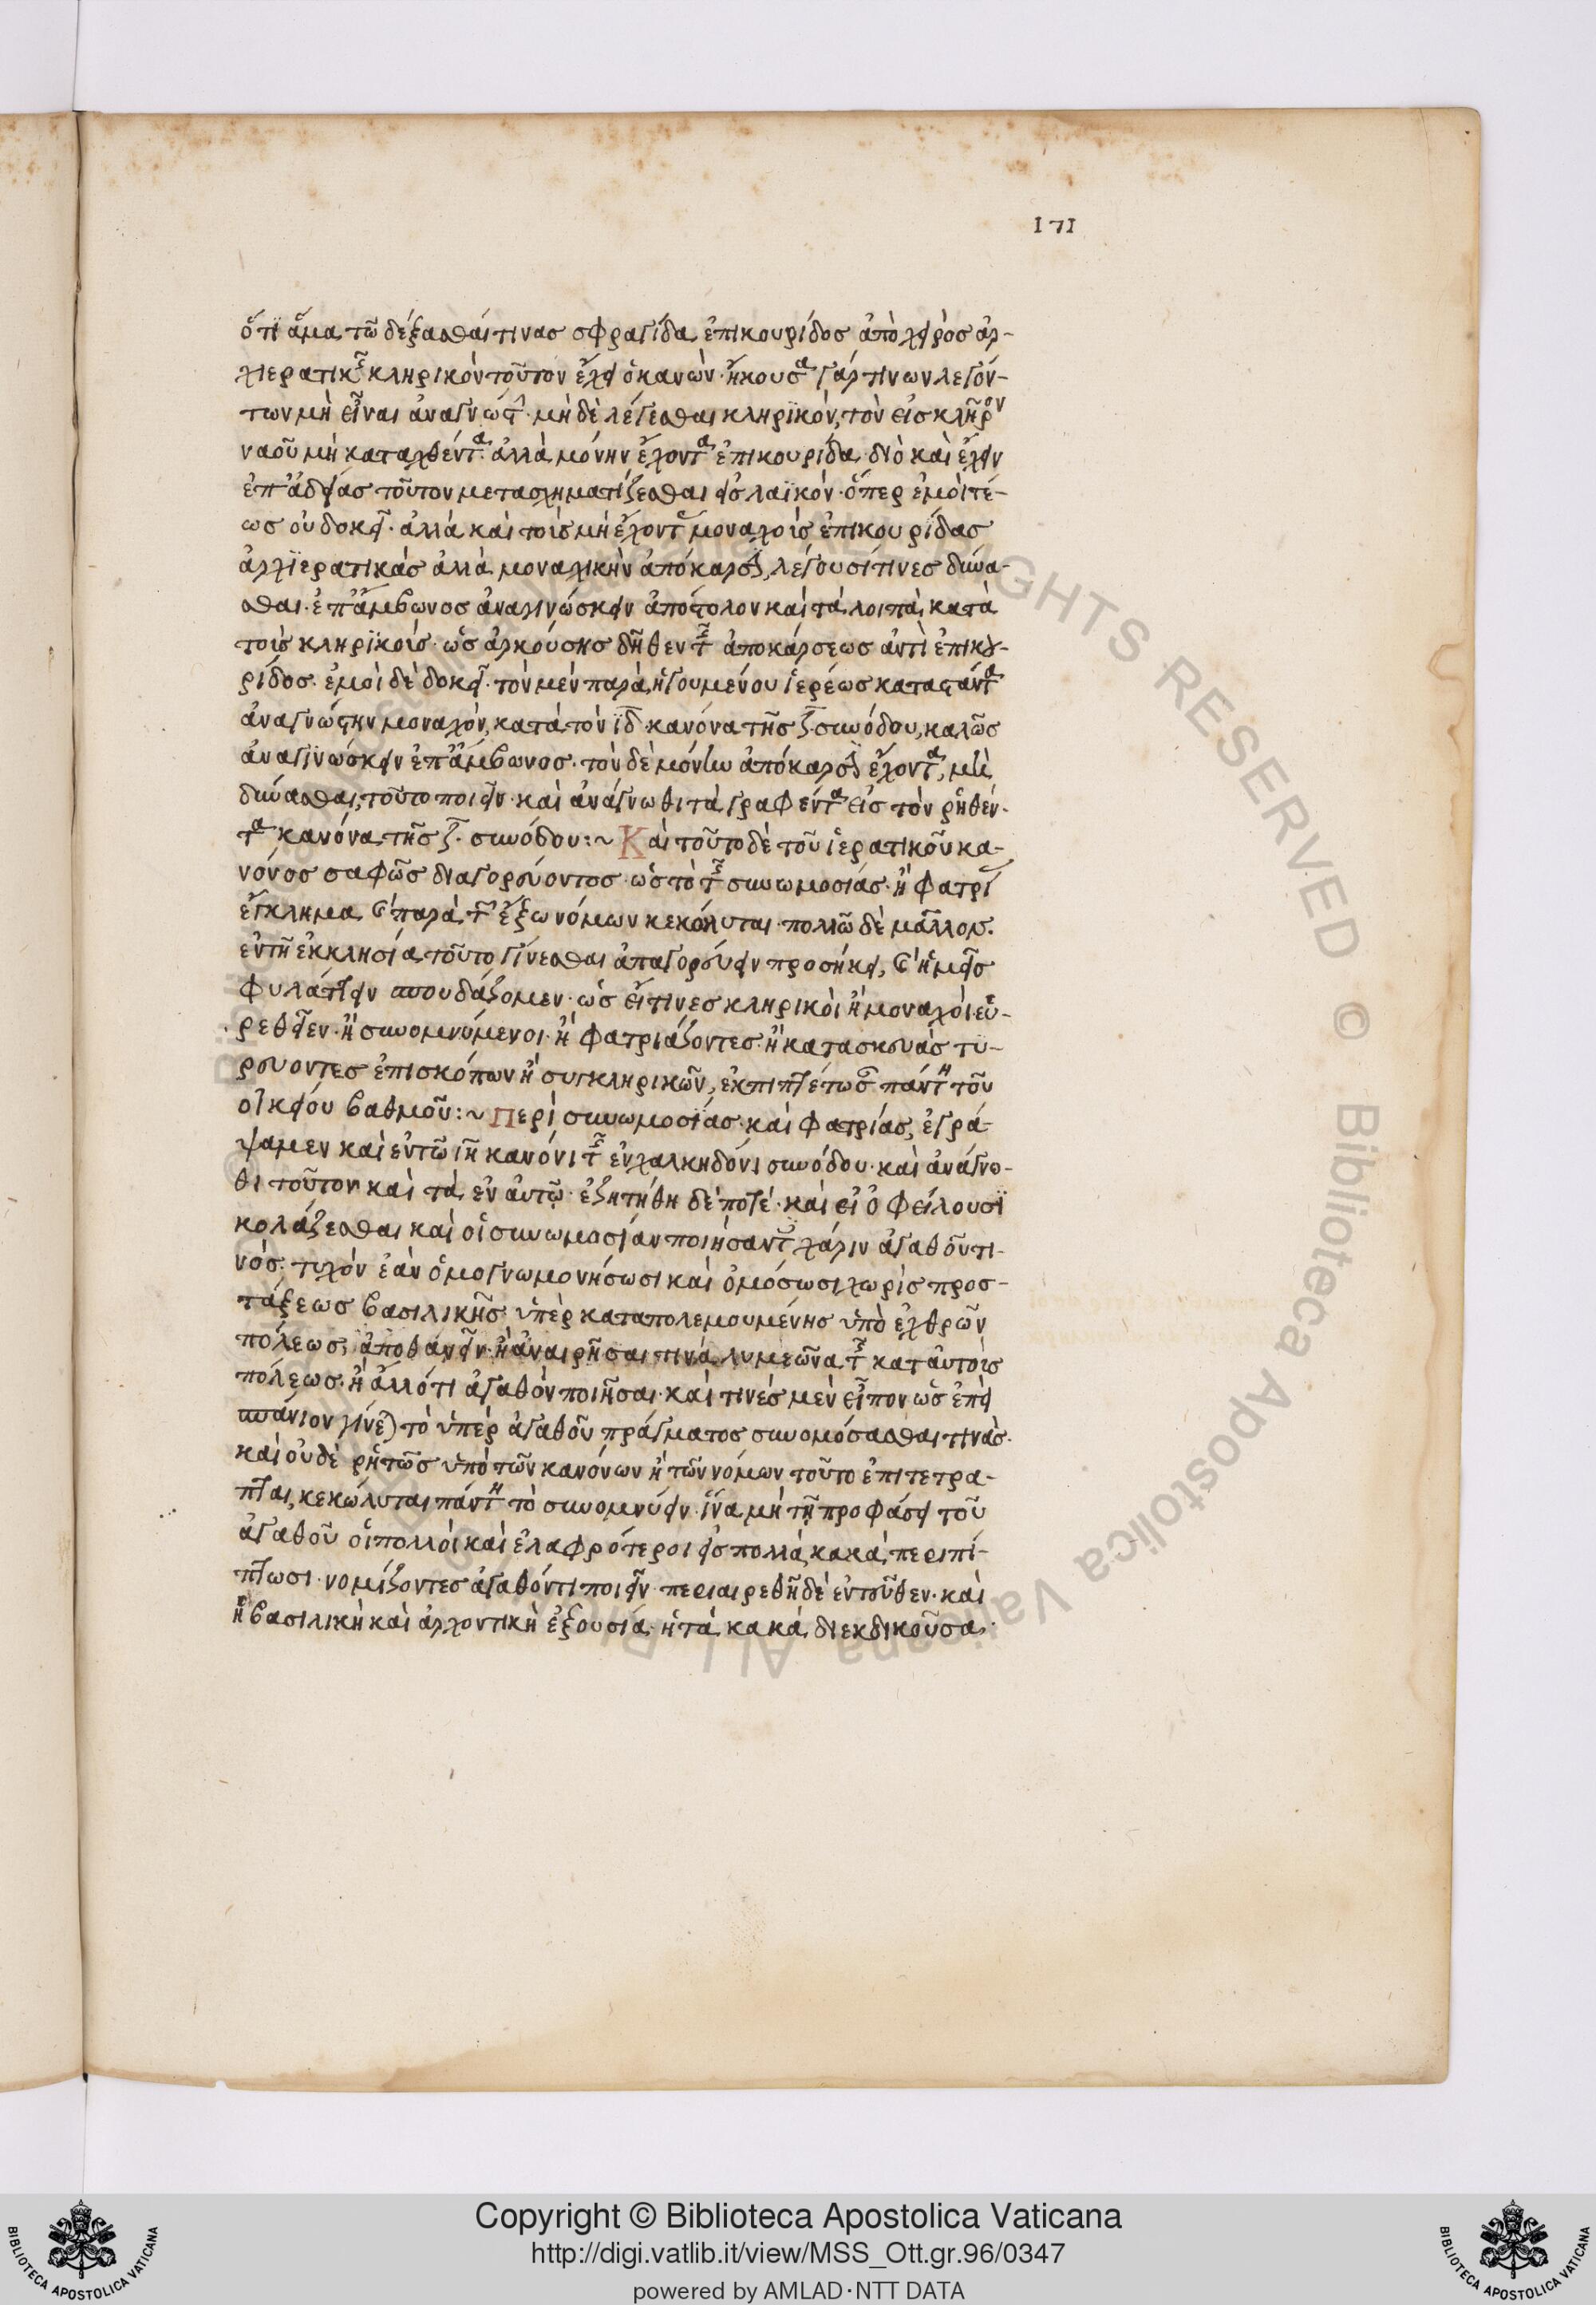 171
ὅτι ἅμα τῶ δέξασθαί τινας σφραγίδα ἐπικουρίδος ἀπὸ χειρὸς ἀρ-
χιερατικῆς κληρικὸν τοῦτον ἔχει ὁ κανών· ἤκουσα γάρ τινων λεγόν-
των μὴ εἶναι ἀναγνώστ μὴ δὲ λέγεσθαι κληρϊκόν, τὸν εἰς κλῆρον
ναοῦ μὴ καταχθέντα· ἀλλὰ μόνην ἔχοντα ἐπικουρίδα· διὸ καὶ ἔχειν
ἐπ' ἀδείας τοῦτον μετασχηματίζεσθαι εἰς λαϊκόν· ὅπερ ἐμοὶ τέ-
ως οὐ δοκεῖ· ἀλλὰ καὶ τοῖς μὴ ἔχουσι μοναχοῖς ἐπικουρίδας
ἀρχϊερατικὰς ἀλλὰ μοναχικὴν ἀπόκαρσιν, λέγουσί τινες δύνα-
σθαι· ἐπ' ἄμβωνος ἀναγινώσκειν ἀπόστολον καὶ τὰ λοιπὰ κατὰ
τοὺς κληρϊκούς· ὡς ἀρκούσης δῆθεν τῆς ἀποκάρσεως ἀντὶ ἐπικου-
ρίδος· ἐμοὶ δὲ δοκεῖ· τὸν μὲν παρὰ ἡγουμένου ἱερέως καταστάντα
ἀναγνώστην μοναχὸν, κατὰ τὸν ιδ κανόνα τῆς ζ συνόδου, καλῶς
ἀναγϊνώσκειν ἐπ' ἄμβωνος· τὸν δὲ μόνην ἀπόκαρσιν ἔχοντα, μὴ
δύνασθαι τοῦτο ποιεῖν· καὶ ἀνάγνωθι τὰ γραφέντα εἰς τὸν ῥηθέν-
τα κανόνα τῆς ζ συνόδου :~ Καὶ τοῦτο δὲ τοῦ ἱερατικοῦ κα-
νόνος σαφῶς διαγορεύοντος· ὡς τὸ τῆς συνωμοσίας ἢ φατρί
ἔγκλημα καὶ παρὰ τῶν ἔξω νόμων κεκώλυται· πολλῶ δὲ μᾶλλον
ἐν τῆ ἐκκλησία τοῦτο γίνεσθαι ἀπαγορεύειν προσήκει, καὶ ἡμεῖς
φυλάττειν σπουδάζομεν· ὡς εἴ τινες κληρικοὶ ἢ μοναχοὶ εὑ-
ρεθεῖεν· ἢ συνομνύμενοι· ἢ φατριάζοντες· ἢ κατασκευὰς τυ-
ρεύοντες ἐπισκόπων ἢ συγκληρικῶν, ἐκπιπτέτωσαν πάντη τοῦ
οἰκείου βαθμοῦ :~ Περὶ συνωμοσΐας καὶ φατρίας, ἐγρά-
ψαμεν καὶ ἐν τῶ ιη κανόνι τῆς ἐν χαλκηδόνι συνόδου· καὶ ἀνάγνω-
θι τοῦτον καὶ τὰ ἐν αὐτῷ· ἐζητήθη δέ ποτέ· καὶ εἰ ὀφείλουσϊ
κολάζεσθαι καὶ οἱ συνωμοσίαν ποιήσαντες χάριν ἀγαθοῦ τι-
νός· τυχὸν ἐὰν ὁμογνωμονήσωσι καὶ ὀμόσωσι χωρὶς προσ-
τάξεως βασιλικῆς ὑπὲρ καταπολεμουμένης ὑπὸ ἐχθρῶν
πόλεως, ἀποθανεῖν· ἢ ἀναιρῆσαι τινὰ λυμεῶνα τῆς κατ' αὐτοὺς
πόλεως· ἢ ἄλλό τι ἀγαθὸν ποιῆσαι· καὶ τινὲς μὲν εἶπον ὡς ἐπεὶ
σπάνιον γίνεται τὸ ὑπὲρ ἀγαθοῦ πράγματος συνομόσασθαι τινάς·
καὶ οὐδὲ ῥητῶς ὑπὸ τῶν κανόνων ἢ τῶν νόμων τοῦτο ἐπιτέτρα-
πται, κεκώλυται πάντη τὸ συνομνύειν· ἵνα μὴ τῇ προφάσει τοῦ
ἀγαθοῦ οἱ πολλοὶ καὶ ἐλαφρότεροι εἰς πολλὰ κακὰ περιπί-
πτωσι· νομίζοντες ἀγαθόν τι ποιεῖν· περιαιρεθῆ δὲ ἐντεῦθεν· καὶ
ἡ βασιλικὴ καὶ ἀρχοντικὴ ἐξουσία· ἡ τὰ κακὰ διεκδικοῦσα·
Copyright © Biblioteca Apostolica Vaticana
http://digi.vatlib.it/view/MSS_Ott.gr.96/0347
powered by AMLAD·NTT DATA